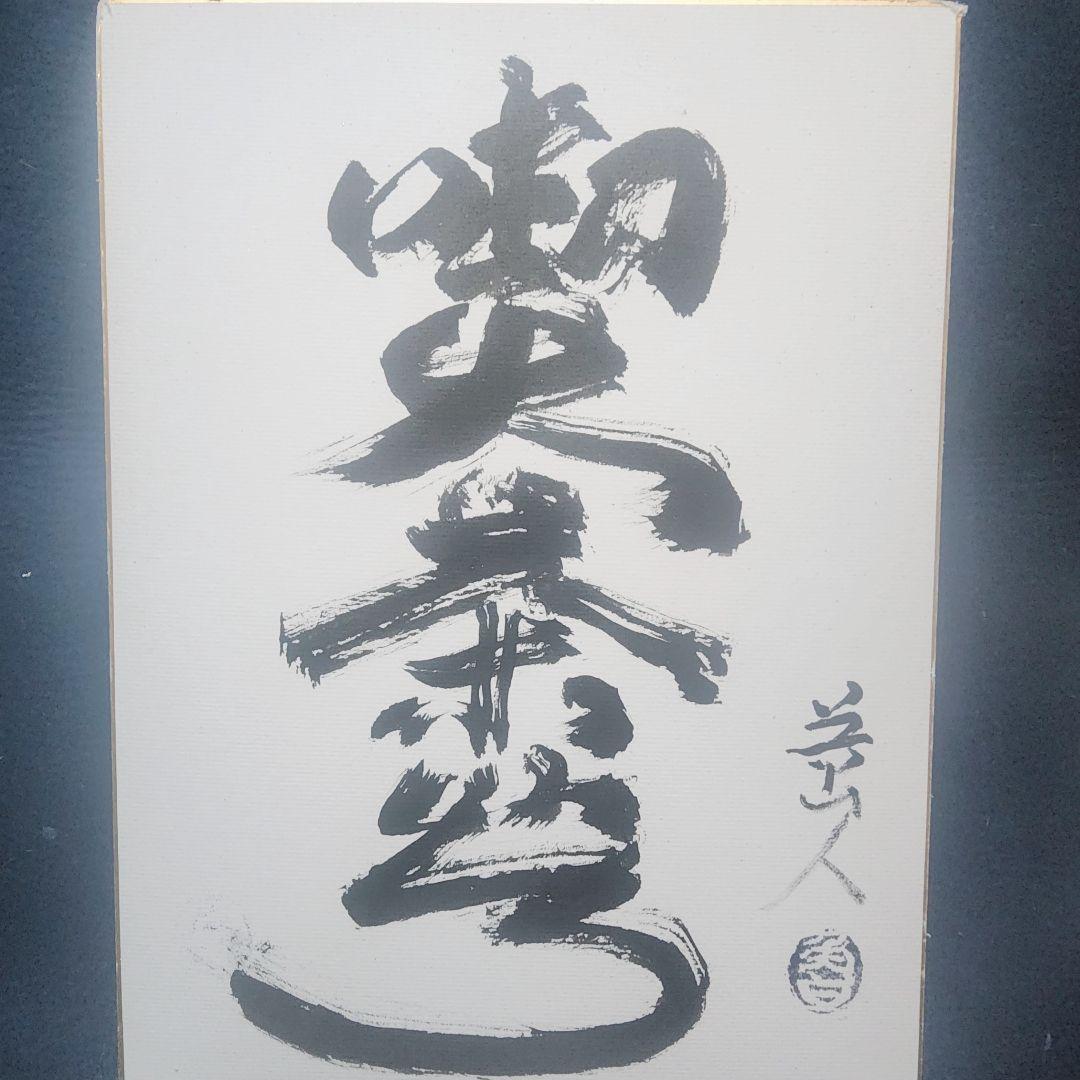 喫茶去
山人